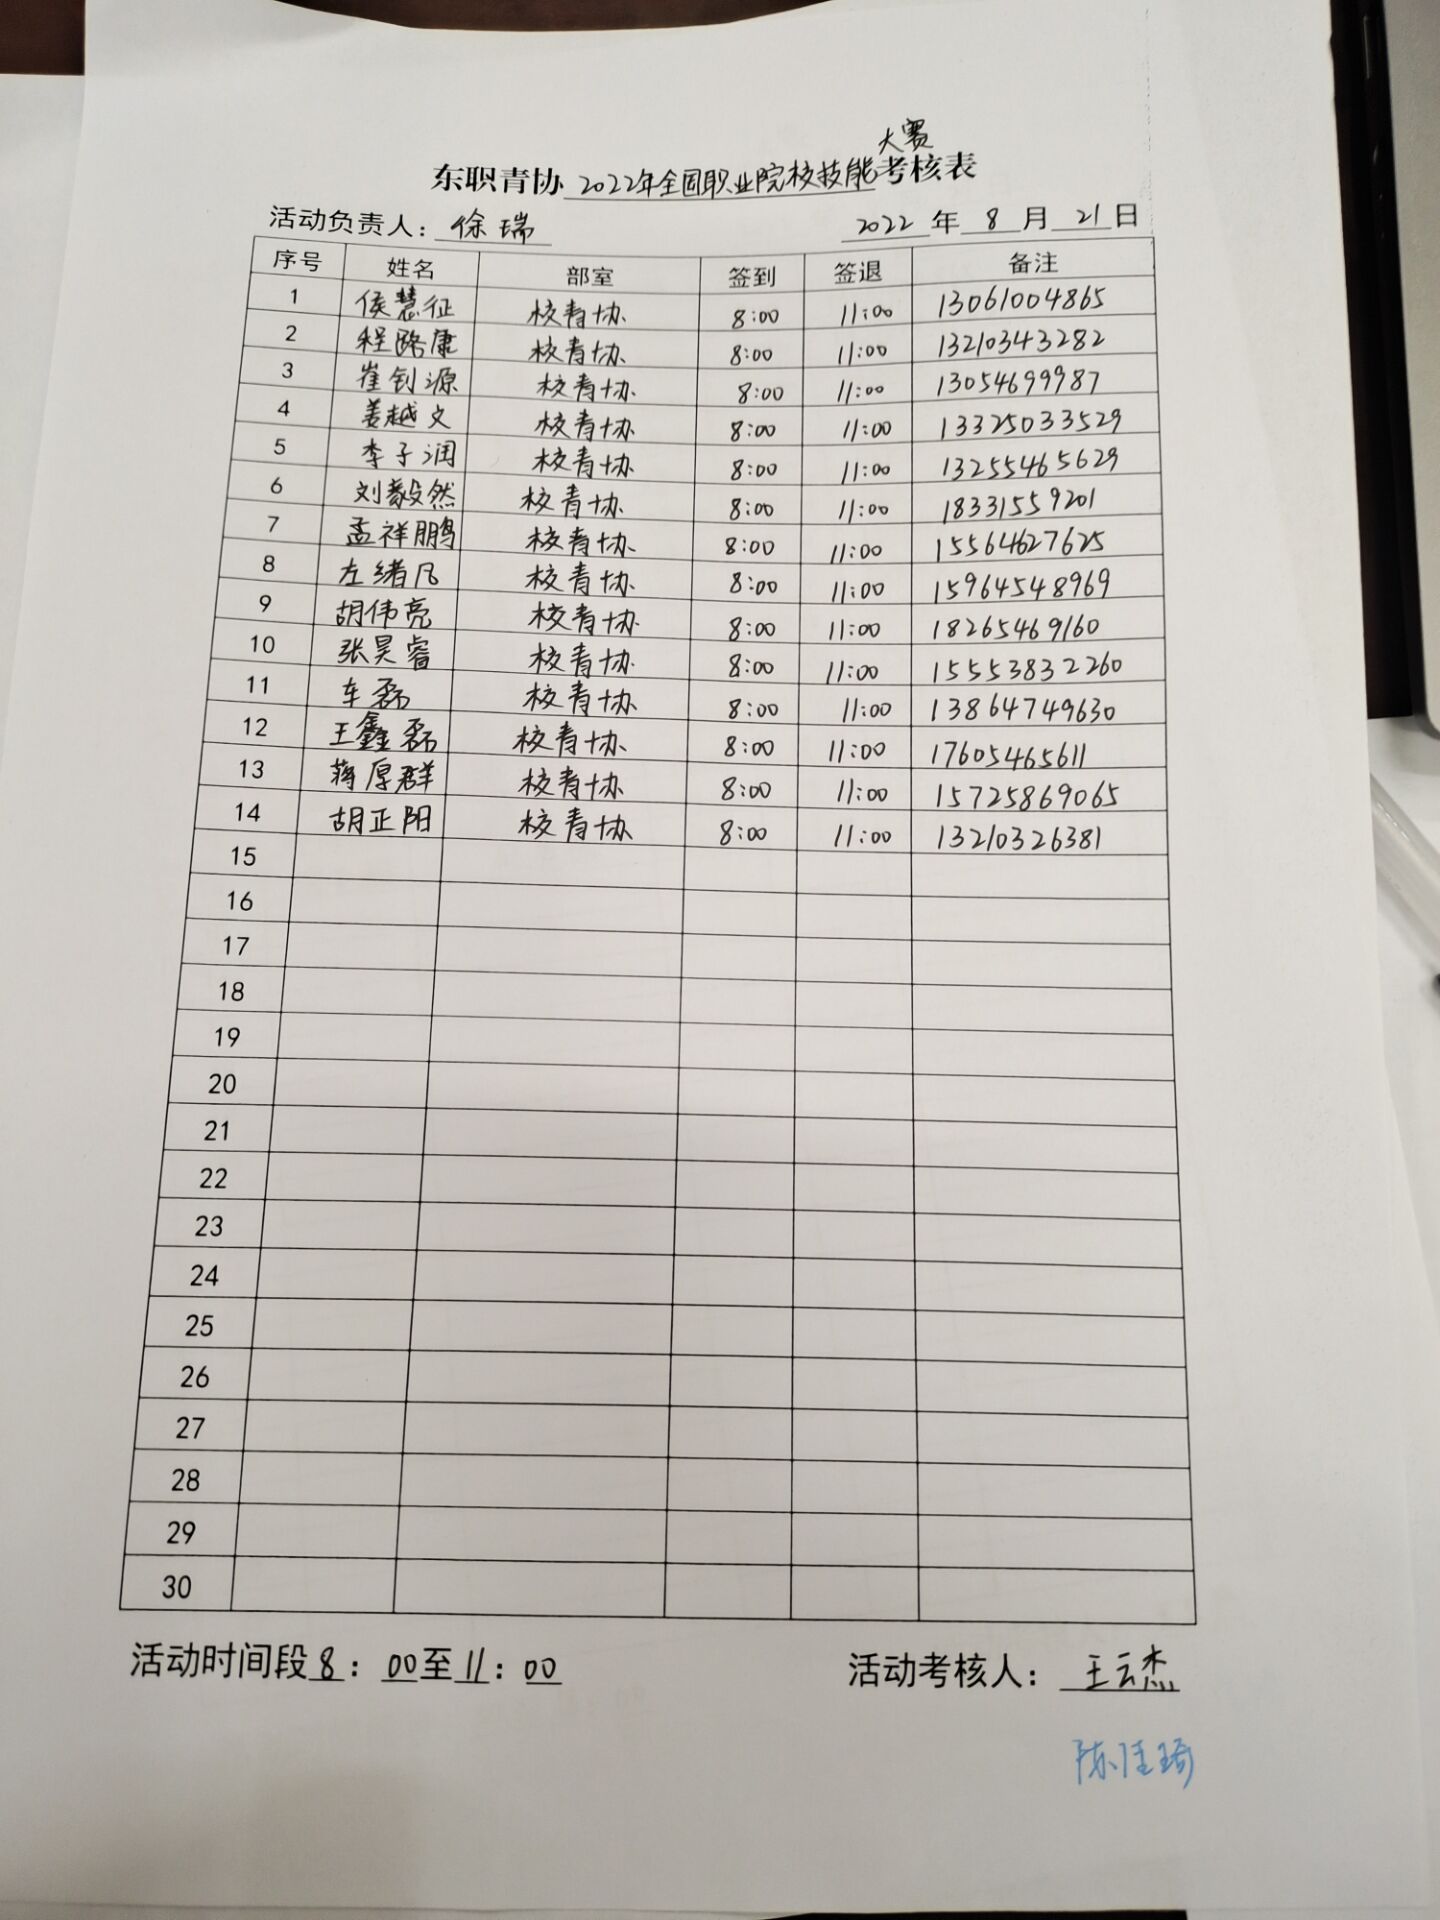 大赛
东职青协2022年全国职业院校技能考核表
活动负责人：徐瑞 2022年8月21日
序号 姓名 部室 签到 签退 备注
1 侯慧征 校青协 8:00 11:00 13061004865
2 程路康 校青协 8:00 11:00 13210343282
3 崔钊源 校青协 8:00 11:00 13054699987
4 姜越文 校青协 8:00 11:00 13325033529
5 李子润 校青协 8:00 11:00 13255465629
6 刘毅然 校青协 8:00 11:00 18331559201
7 孟祥鹏 校青协 8:00 11:00 15564627625
8 左绪凡 校青协 8:00 11:00 15964548969
9 胡伟亮 校青协 8:00 11:00 18265469160
10 张昊睿 校青协 8:00 11:00 15553832260
11 车磊 校青协 8:00 11:00 13864749630
12 王鑫磊 校青协 8:00 11:00 17605465611
13 蒋厚群 校青协 8:00 11:00 15725869065
14 胡正阳 校青协 8:00 11:00 13210326381
15
16
17
18
19
20
21
22
23
24
25
26
27
28
29
30
活动时间段8：00至11：00 活动考核人：王云杰
陈佳琦